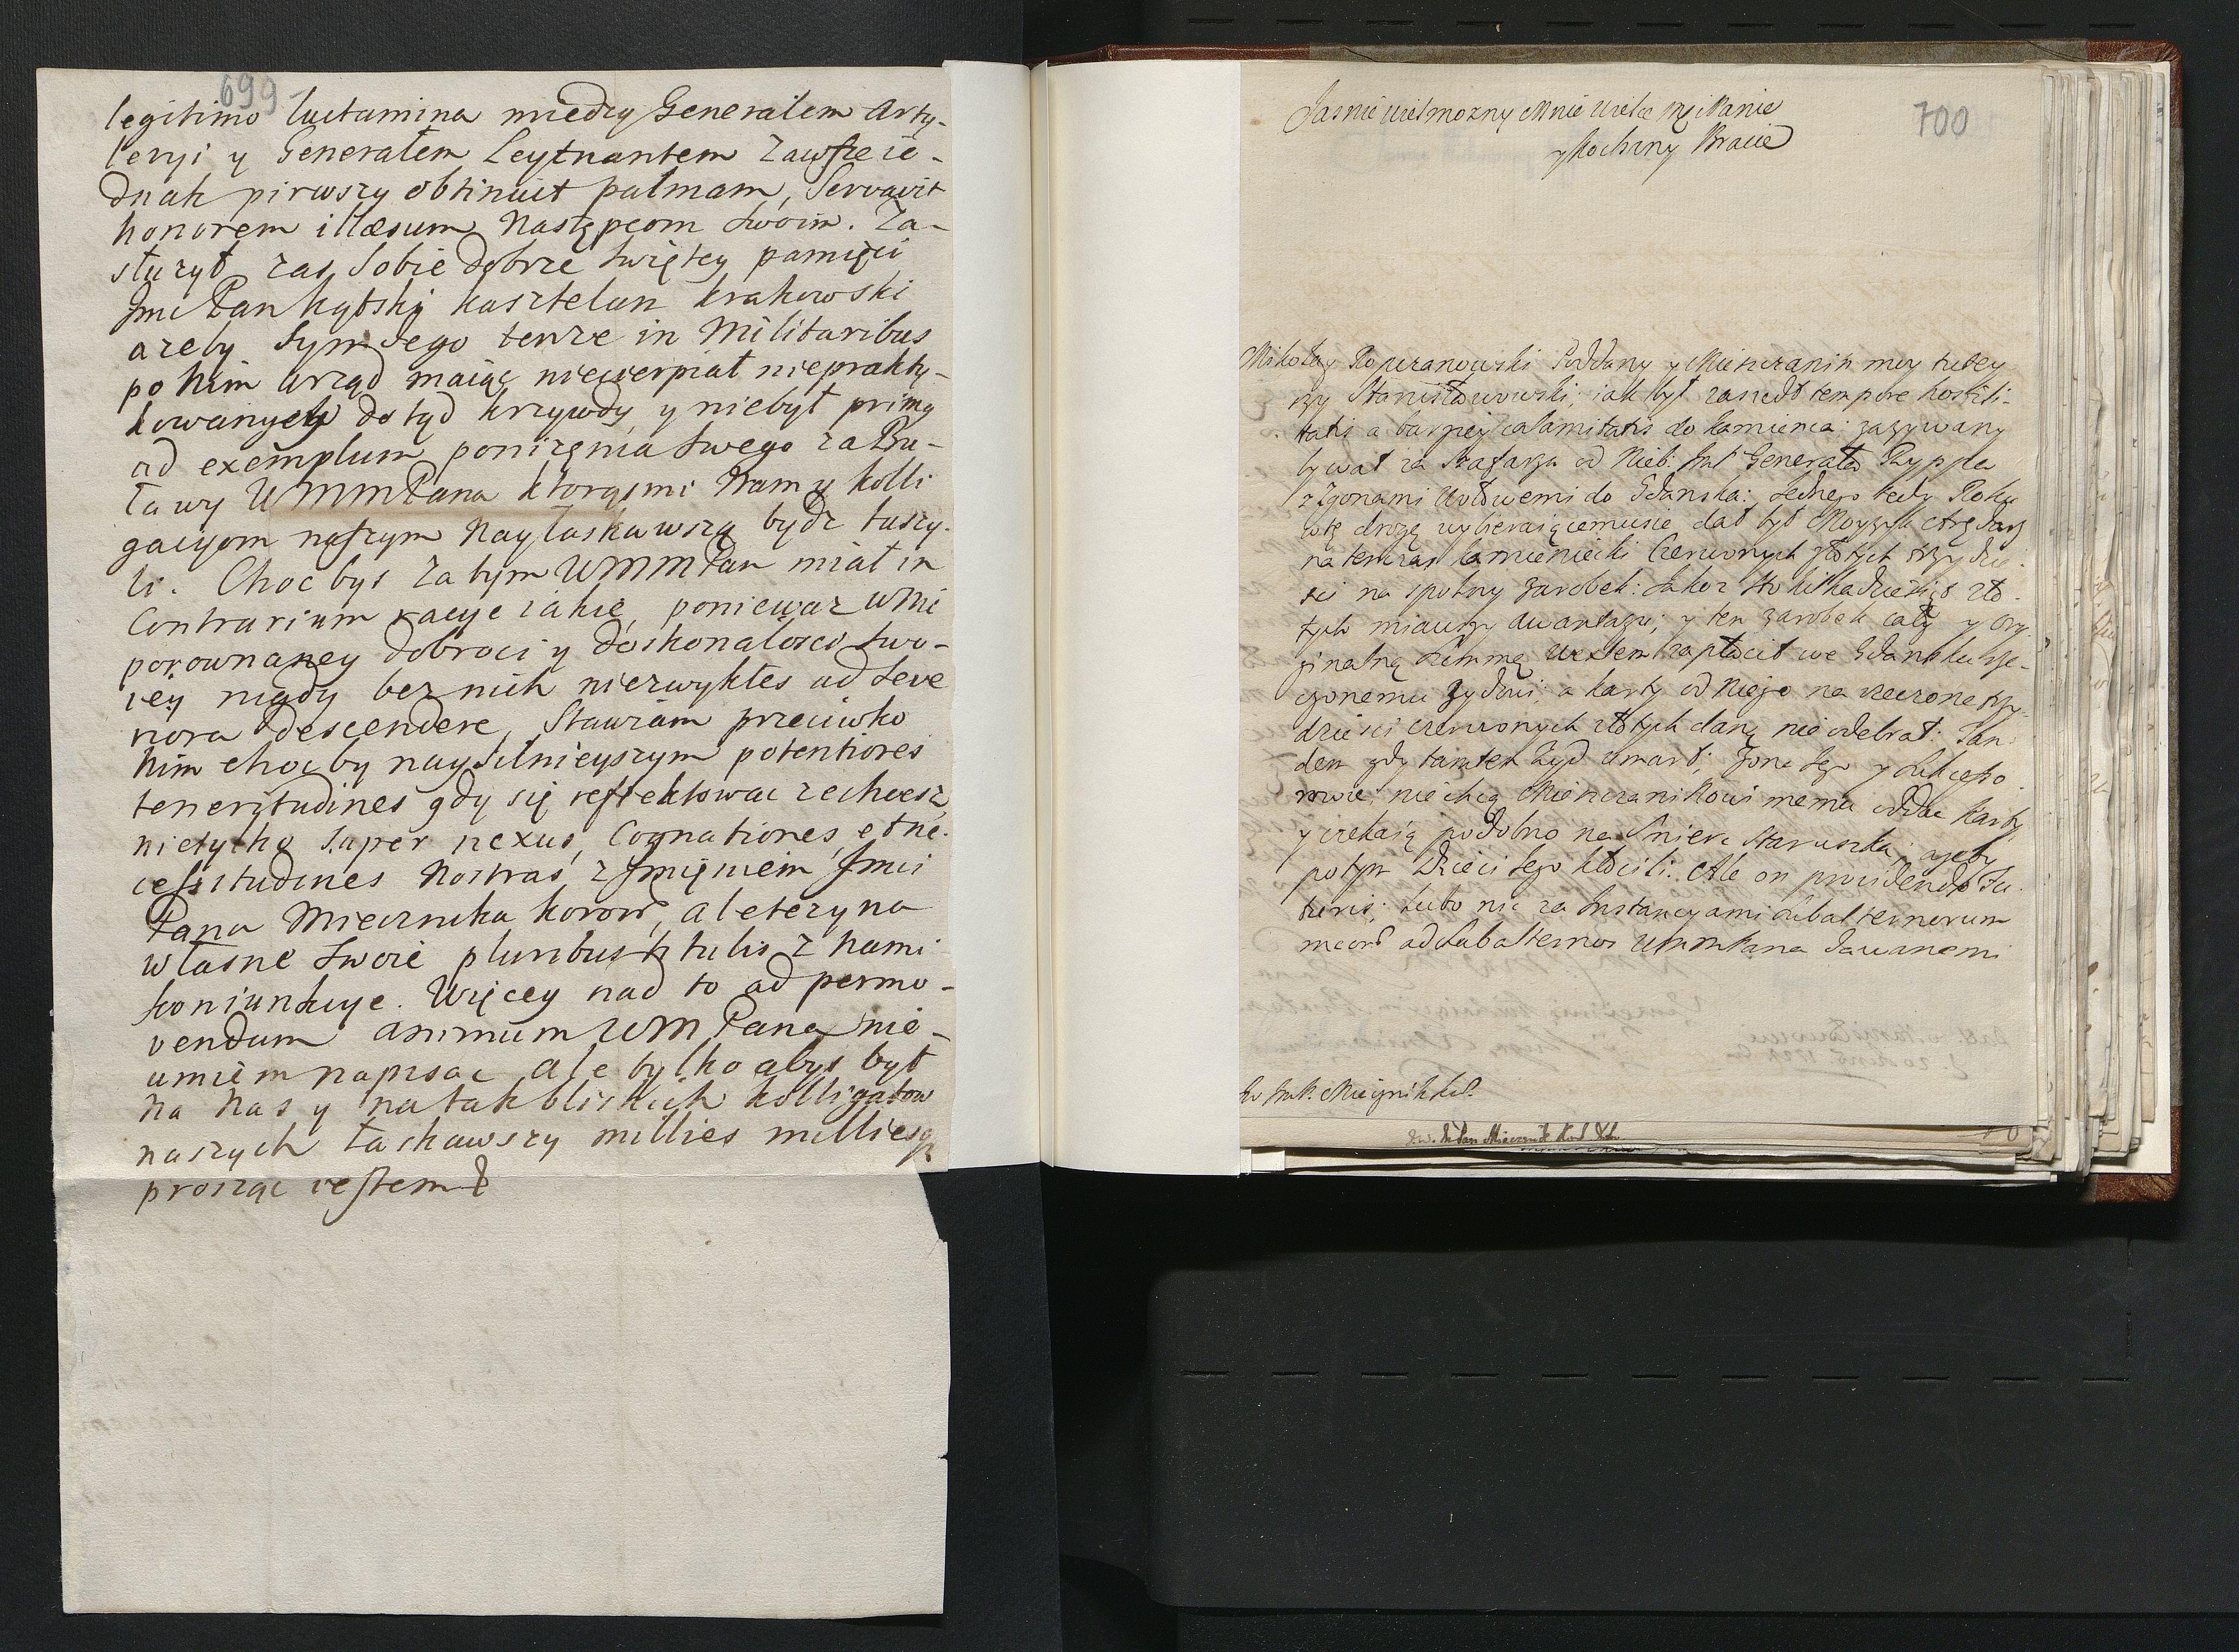 699
legitimo luctamina miedzy Generałem Arty-
leryi y Generałem Leytnantem zawsze ie-
dnak pirwszy obtinuit palmam, servavit
honorem illæsum Następcom swoim. Za-
słuzył zas sobie dobrze swiętey pamięci
Jmć Pan Kątski kasztelan krakowski
azeby Syn Jego tenze in Militaribus
po Nim urząd maiąc niecierpiał nieprakty-
kowanych dotąd krzywdy y niebył primą
ad exemplum ponizenia swego za
WMMPana ktorąsmi Nam y kolli
gacyom naszym Nayłaskawszą bydz tuszy-
li. Choc bys zatym WMMPan miał in
Contrarium racye iakie, poniewaz wNie
porownaney dobroci y doskonałosci swo-
iey nigdy bez nich niezwykłes ad seve
riora descendere, Stawiam przeciwko
Nim chocby naysilnieyszym potentiores
teneritudines gdy się reflektowac zechcesz,
nietylko super nexus, Cognationes, et ne-
cessitudines Nostras z Jmięniem Jmci
Pana Miecznika koron, ale tez y na
własne swoie pluribus titulis z nami
koniunkcye. Więcey nad to ad permo-
vendum animum WM Pana nie-
umiem napisac ale tylko abys był
na Nas y na tak bliskich kolligatow
naszych łaskawszy millies milliesq
prosząc iestem
700
Jasnie Wielmozny Mnie Wielce Mci Panie
y Kochany Bracie
Mikołay Koperanowski Poddany y Mieszczanin moy tutey
szy Stanisławowski, iak był zaszedł tempore hostili-
tatis a barziey calamitatis do Kamienca: zazywany
bywał za Szafarza od Nieb: Jmć Generała Ryppa
z Zgonami Wołowemi do Gdanska: Jednego tedy Roku
wtę drogę wybieraiącemusie, dał był
na tenczas kamieniecki Czerwonych złotych trzydzie-
sci na spolny zarobek: Jakoz zło-
tych miawszy awantazu; y ten zarobek cały y ory-
ginalną summę Wexlem zapłacił we Gdansku rze-
czonemu Zydowi; a karty od Niego na rzeczone trzy-
dziesci czerwonych złotych daną nie odebrał: Tan-
dem gdy tamten Zyd umarł; Zona Jego y Sukcesso-
rowie, niechcą Mieszczanikowi memu oddac karty,
y czekaią podobno na smierc Staruszka, azeby
potym Dzieci Jego kłocili: Ale on providendo fu-
turis; lubo nic za Instancyami subalternorum
meorum ad subalternos WMMPana dawanemi
Do JmP. Miecznik kor.